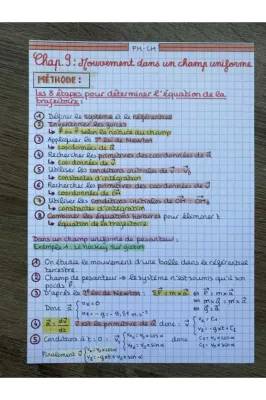 PH-CH
Chap 9 : Mouvement dans un champ uniforme
MÉTHODE :
Les 8 étapes pour déterminer l'équation de la
trajectoire :
① Définir le système et le référentiel
② Inventorier les forces
↳ selon la nature du champ
③ Appliquer la 2e loi de Newton
↳ coordonnées de a⃗
④ Rechercher les primitives des coordonnées de a⃗
↳ coordonnées de v⃗
⑤ Utiliser les conditions initiales de v⃗ : v⃗₀
↳ constantes d'intégration
⑥ Rechercher les primitives des coordonnées de v⃗
↳ coordonnées de OM⃗
⑦ Utiliser les conditions initiales de OM⃗ : OM⃗₀
↳ constantes d'intégration
⑧ Combiner les équations horaires pour éliminer t
↳ équation de la trajectoire
Dans un champ uniforme de pesanteur :
Exemple 1 : le hockey sur gazon
① On étudie le mouvement d'une balle dans le référentiel
terrestre.
② Champ de pesanteur → le système n'est soumis qu'à son
poids P⃗
③ D'après la 2e loi de Newton ΣF⃗ = m × a⃗ ⇔ P⃗ = m × a⃗
⇔ m × g⃗ = m × a⃗
⇔ g⃗ = a⃗
Donc a⃗ { ax = 0
④ a⃗ = dv⃗/dt v⃗ est la primitive de a⃗ donc : v⃗ { vx = C₁
vy = -g × t + C₂
⑤ Conditions à t = 0 : v⃗₀
Finalement v⃗